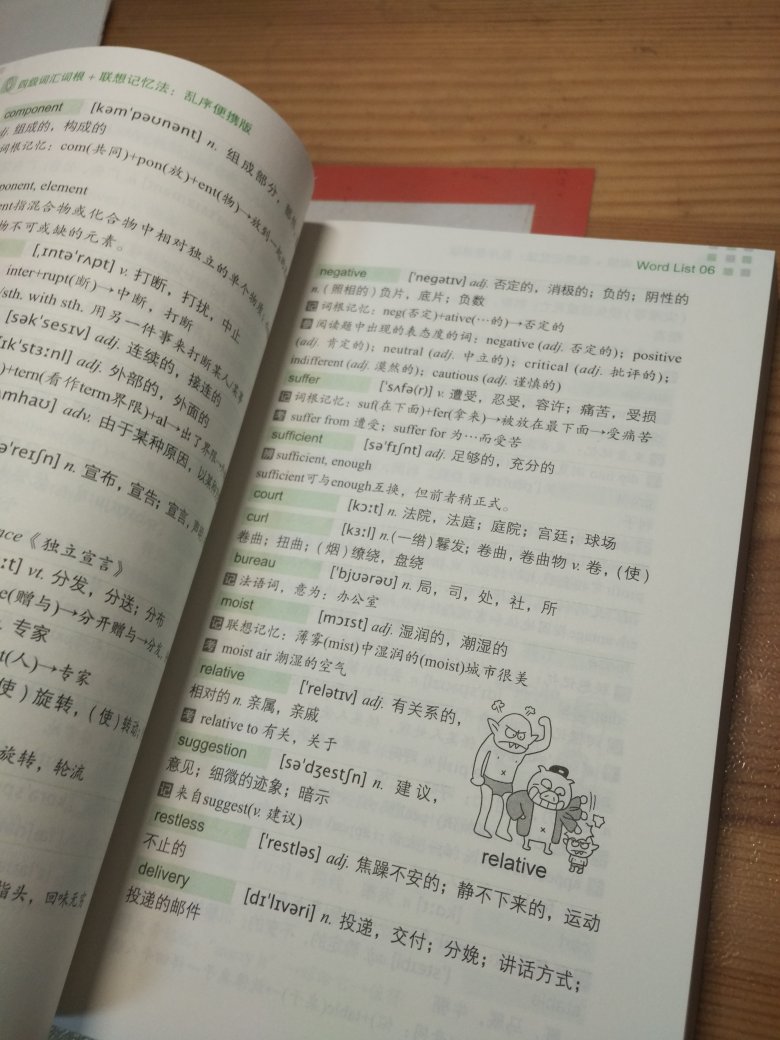 四级词汇词根+联想记忆法：乱序便携版
component [kəmˈpəʊnənt] n. 组成部分，
组成的，构成的
词根记忆：com(共同)+pon(放)+ent(物)→放到一起的
ponent, element
ent指混合物或化合物中相对独立的单个物质
物不可或缺的元素。
[ˌɪntəˈrʌpt] v. 打断，打扰，中止
inter+rupt(断)→中断，打断
/sth. with sth. 用另一件事来打断某人/某事
[səkˈsesɪv] adj. 连续的，接连的
[ɪkˈstɜːnl] adj. 外部的，外面的
)+tern(看作term界限)+al→出了界限
mhaʊ] adv. 由于某种原因，以某种
əˈreɪʃn] n. 宣布，宣告；宣言，
ace《独立宣言》
ːt] vt. 分发，分送；分布
e(赠与)→分开赠与→分发
专家
t(人)→专家
使）旋转，（使）转动
旋转，轮流
指头，回味无穷
Word List 06
negative [ˈneɡətɪv] adj. 否定的，消极的；负的；阴性的
n.（照相的）负片，底片；负数
记 词根记忆：neg(否定)+ative(…的)→否定的
阅读题中出现的表态度的词：negative (adj. 否定的)；positive
(adj. 肯定的)；neutral (adj. 中立的)；critical (adj. 批评的)；
indifferent (adj. 漠然的)；cautious (adj. 谨慎的)
suffer [ˈsʌfə(r)] v. 遭受，忍受，容许；痛苦，受损
记 词根记忆：suf(在下面)+fer(拿来)→被放在最下面→受痛苦
考 suffer from 遭受；suffer for 为…而受苦
sufficient [səˈfɪʃnt] adj. 足够的，充分的
辨 sufficient, enough
sufficient可与enough互换，但前者稍正式。
court [kɔːt] n. 法院，法庭；庭院；宫廷；球场
curl [kɜːl] n.(一绺)鬈发；卷曲，卷曲物 v. 卷，（使）
卷曲；扭曲；（烟）缭绕，盘绕
bureau [ˈbjʊərəʊ] n. 局，司，处，社，所
记 法语词，意为：办公室
moist [mɔɪst] adj. 湿润的，潮湿的
记 联想记忆：薄雾(mist)中湿润的(moist)城市很美
考 moist air 潮湿的空气
relative [ˈrelətɪv] adj. 有关系的，
相对的 n. 亲属，亲戚
考 relative to 有关，关于
suggestion [səˈdʒestʃn] n. 建议，
意见；细微的迹象；暗示
记 来自suggest(v. 建议)
relative
restless [ˈrestləs] adj. 焦躁不安的；静不下来的，运动
不止的
delivery [dɪˈlɪvəri] n. 投递，交付；分娩；讲话方式；
投递的邮件